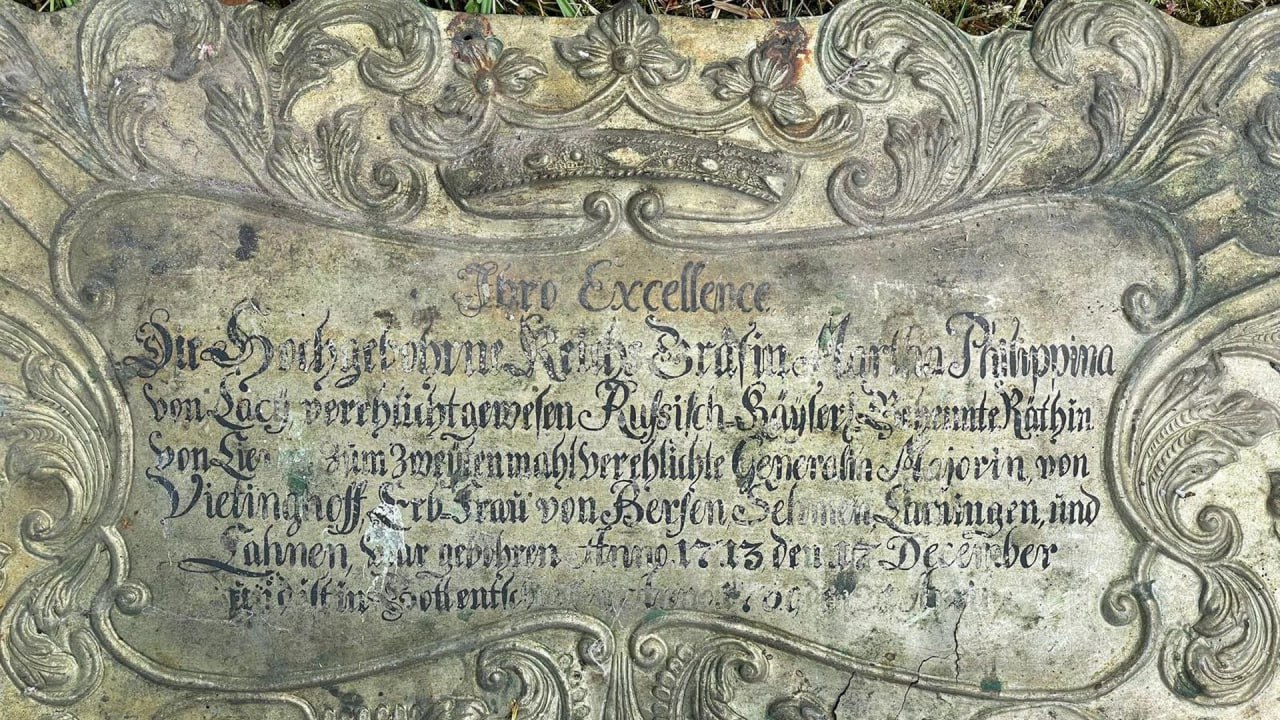 Ihro Excellence
Die Hochgebohrne Reichs Gräfin Martha Philippina
von Lacy verehlicht gewesen Russisch-Käyserl Geheimte Räthin
von zum Zweytenmahl Verehlichte Generalin Majorin, von
Vietinghoff, Erb-Frau von Bersen, und
Lahnen, War gebohren Anno 1713 den December
in Gott entsch